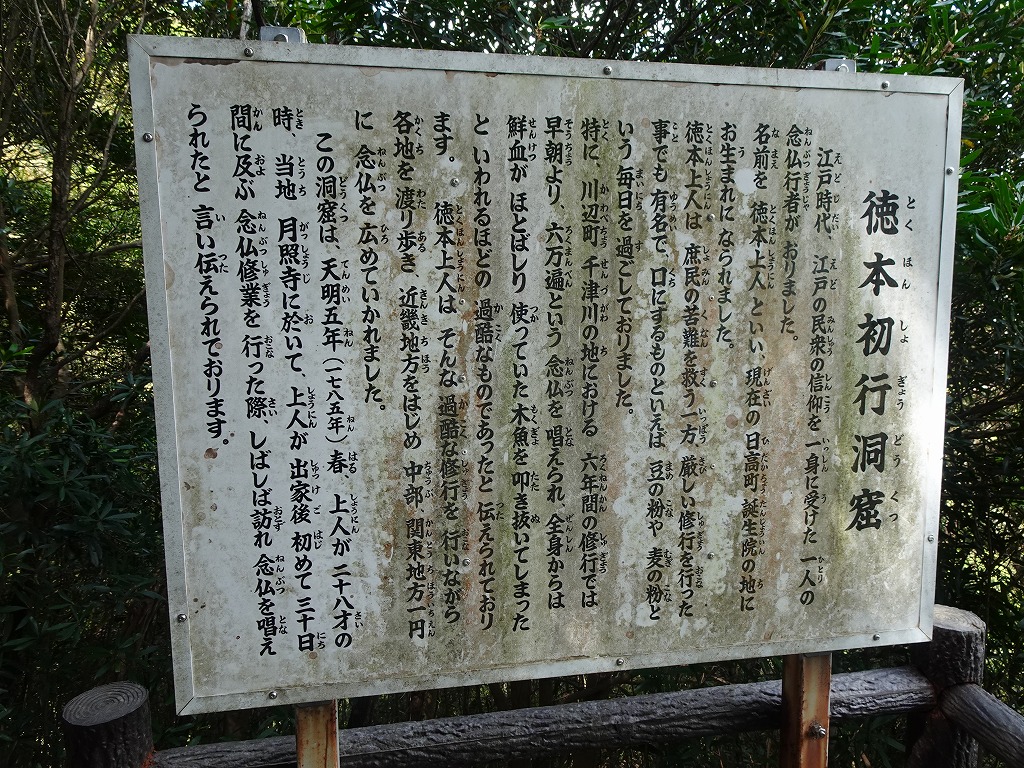 徳本初行洞窟
江戸時代、江戸の民衆の信仰を一身に受けた 一人の
念仏行者がおりました。
名前を 徳本上人 といい、現在の 日高町 誕生院の地に
お生まれに なられました。
徳本上人は 庶民の苦難を救う一方 厳しい修行を行った
事でも 有名で、口にするものといえば 豆の粉や 麦の粉と
いう毎日を過ごしておりました。
特に、川辺町 千津川の地における 六年間の修行では
早朝より、六万遍という 念仏を 唱えられ、全身からは
鮮血が ほとばしり 使っていた木魚を叩き抜いてしまった
と いわれるほどの 過酷なものであったと 伝えられており
ます。徳本上人は そんな 過酷な修行を 行いながら
各地を 渡り歩き 近畿地方をはじめ 中部、関東地方一円
に 念仏を 広めていかれました。
この洞窟は、天明五年(一七八五年)春、上人が 二十八才の
時、当地 月照寺に於いて、上人が 出家後 初めて 三十日
間に及ぶ 念仏修業を 行った際、しばしば訪れ 念仏を唱え
られたと 言い伝えられております。